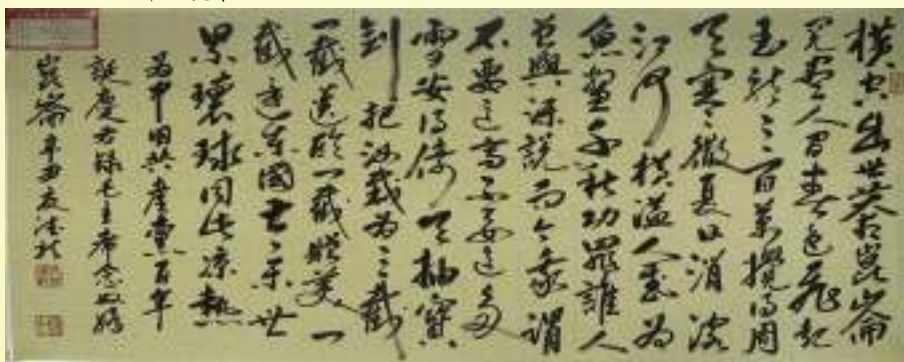 横空出世莽崑崙
阅尽人间春色飞起
玉龙三百万搅得周
天寒彻夏日消溶
江河横溢人或为
魚鳖千秋功罪誰人
曾與評說而今我謂
不要這高不要這多
雪安得倚天抽宝
剑把汝裁为三截
一截遗欧一截赠美一
截还东國太平世
界環球同此凉熱
为中国共產党百年
誕慶右録毛主席念奴娇
崑崙辛丑